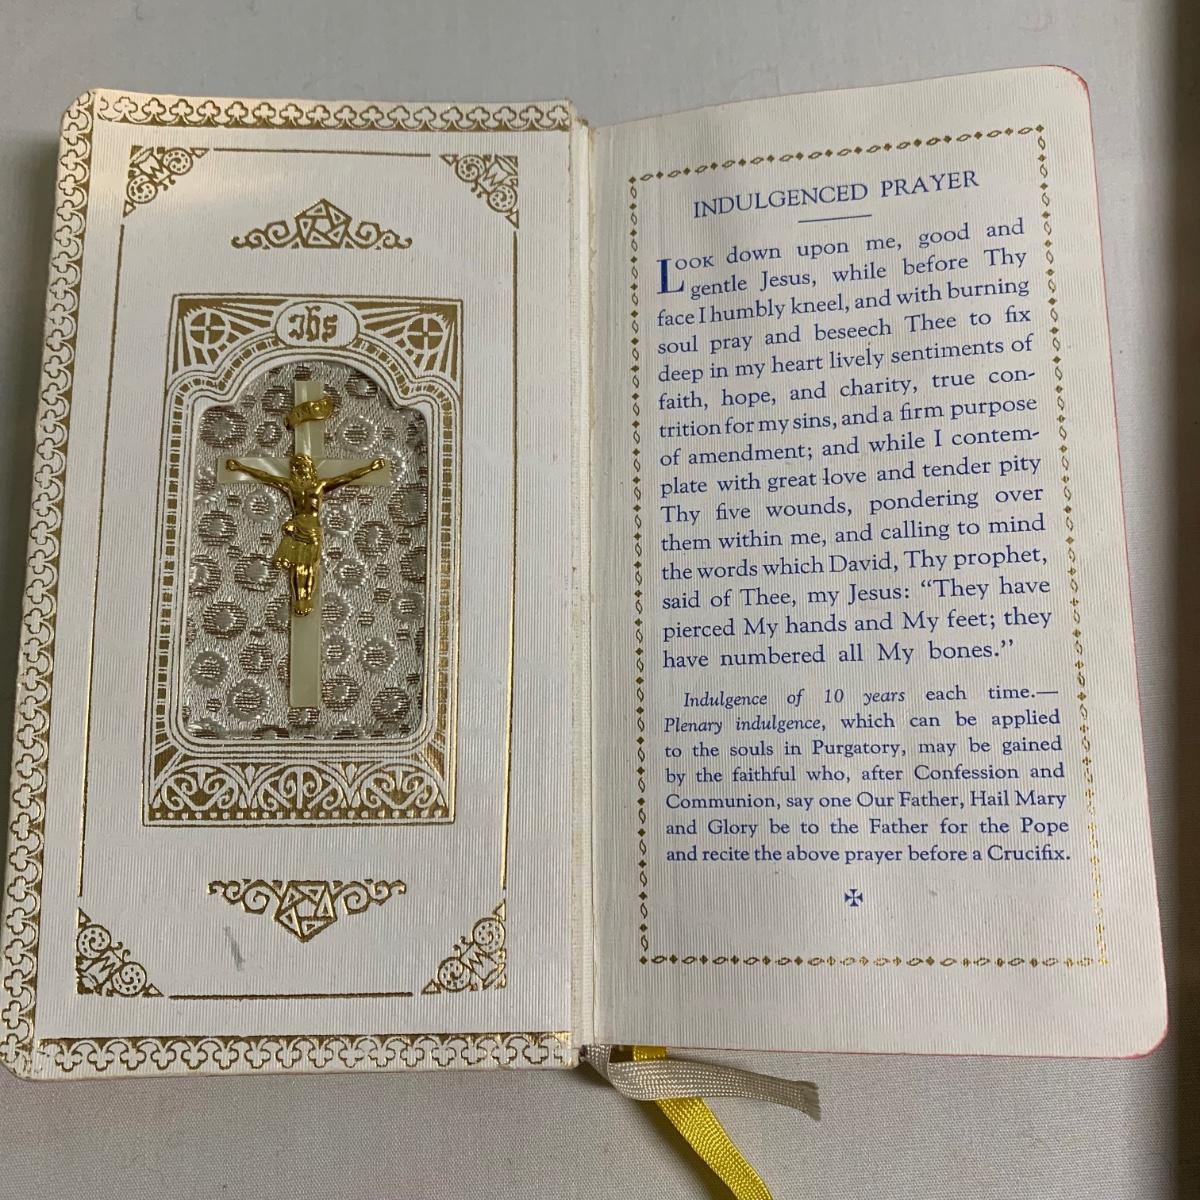 jhs
INRI
INDULGENCED PRAYER
LOOK down upon me, good and
gentle Jesus, while before Thy
face I humbly kneel, and with burning
soul pray and beseech Thee to fix
deep in my heart lively sentiments of
faith, hope, and charity, true con-
trition for my sins, and a firm purpose
of amendment; and while I contem-
plate with great love and tender pity
Thy five wounds, pondering over
them within me, and calling to mind
the words which David, Thy prophet,
said of Thee, my Jesus: “They have
pierced My hands and My feet; they
have numbered all My bones.”
Indulgence of 10 years each time.—
Plenary indulgence, which can be applied
to the souls in Purgatory, may be gained
by the faithful who, after Confession and
Communion, say one Our Father, Hail Mary
and Glory be to the Father for the Pope
and recite the above prayer before a Crucifix.